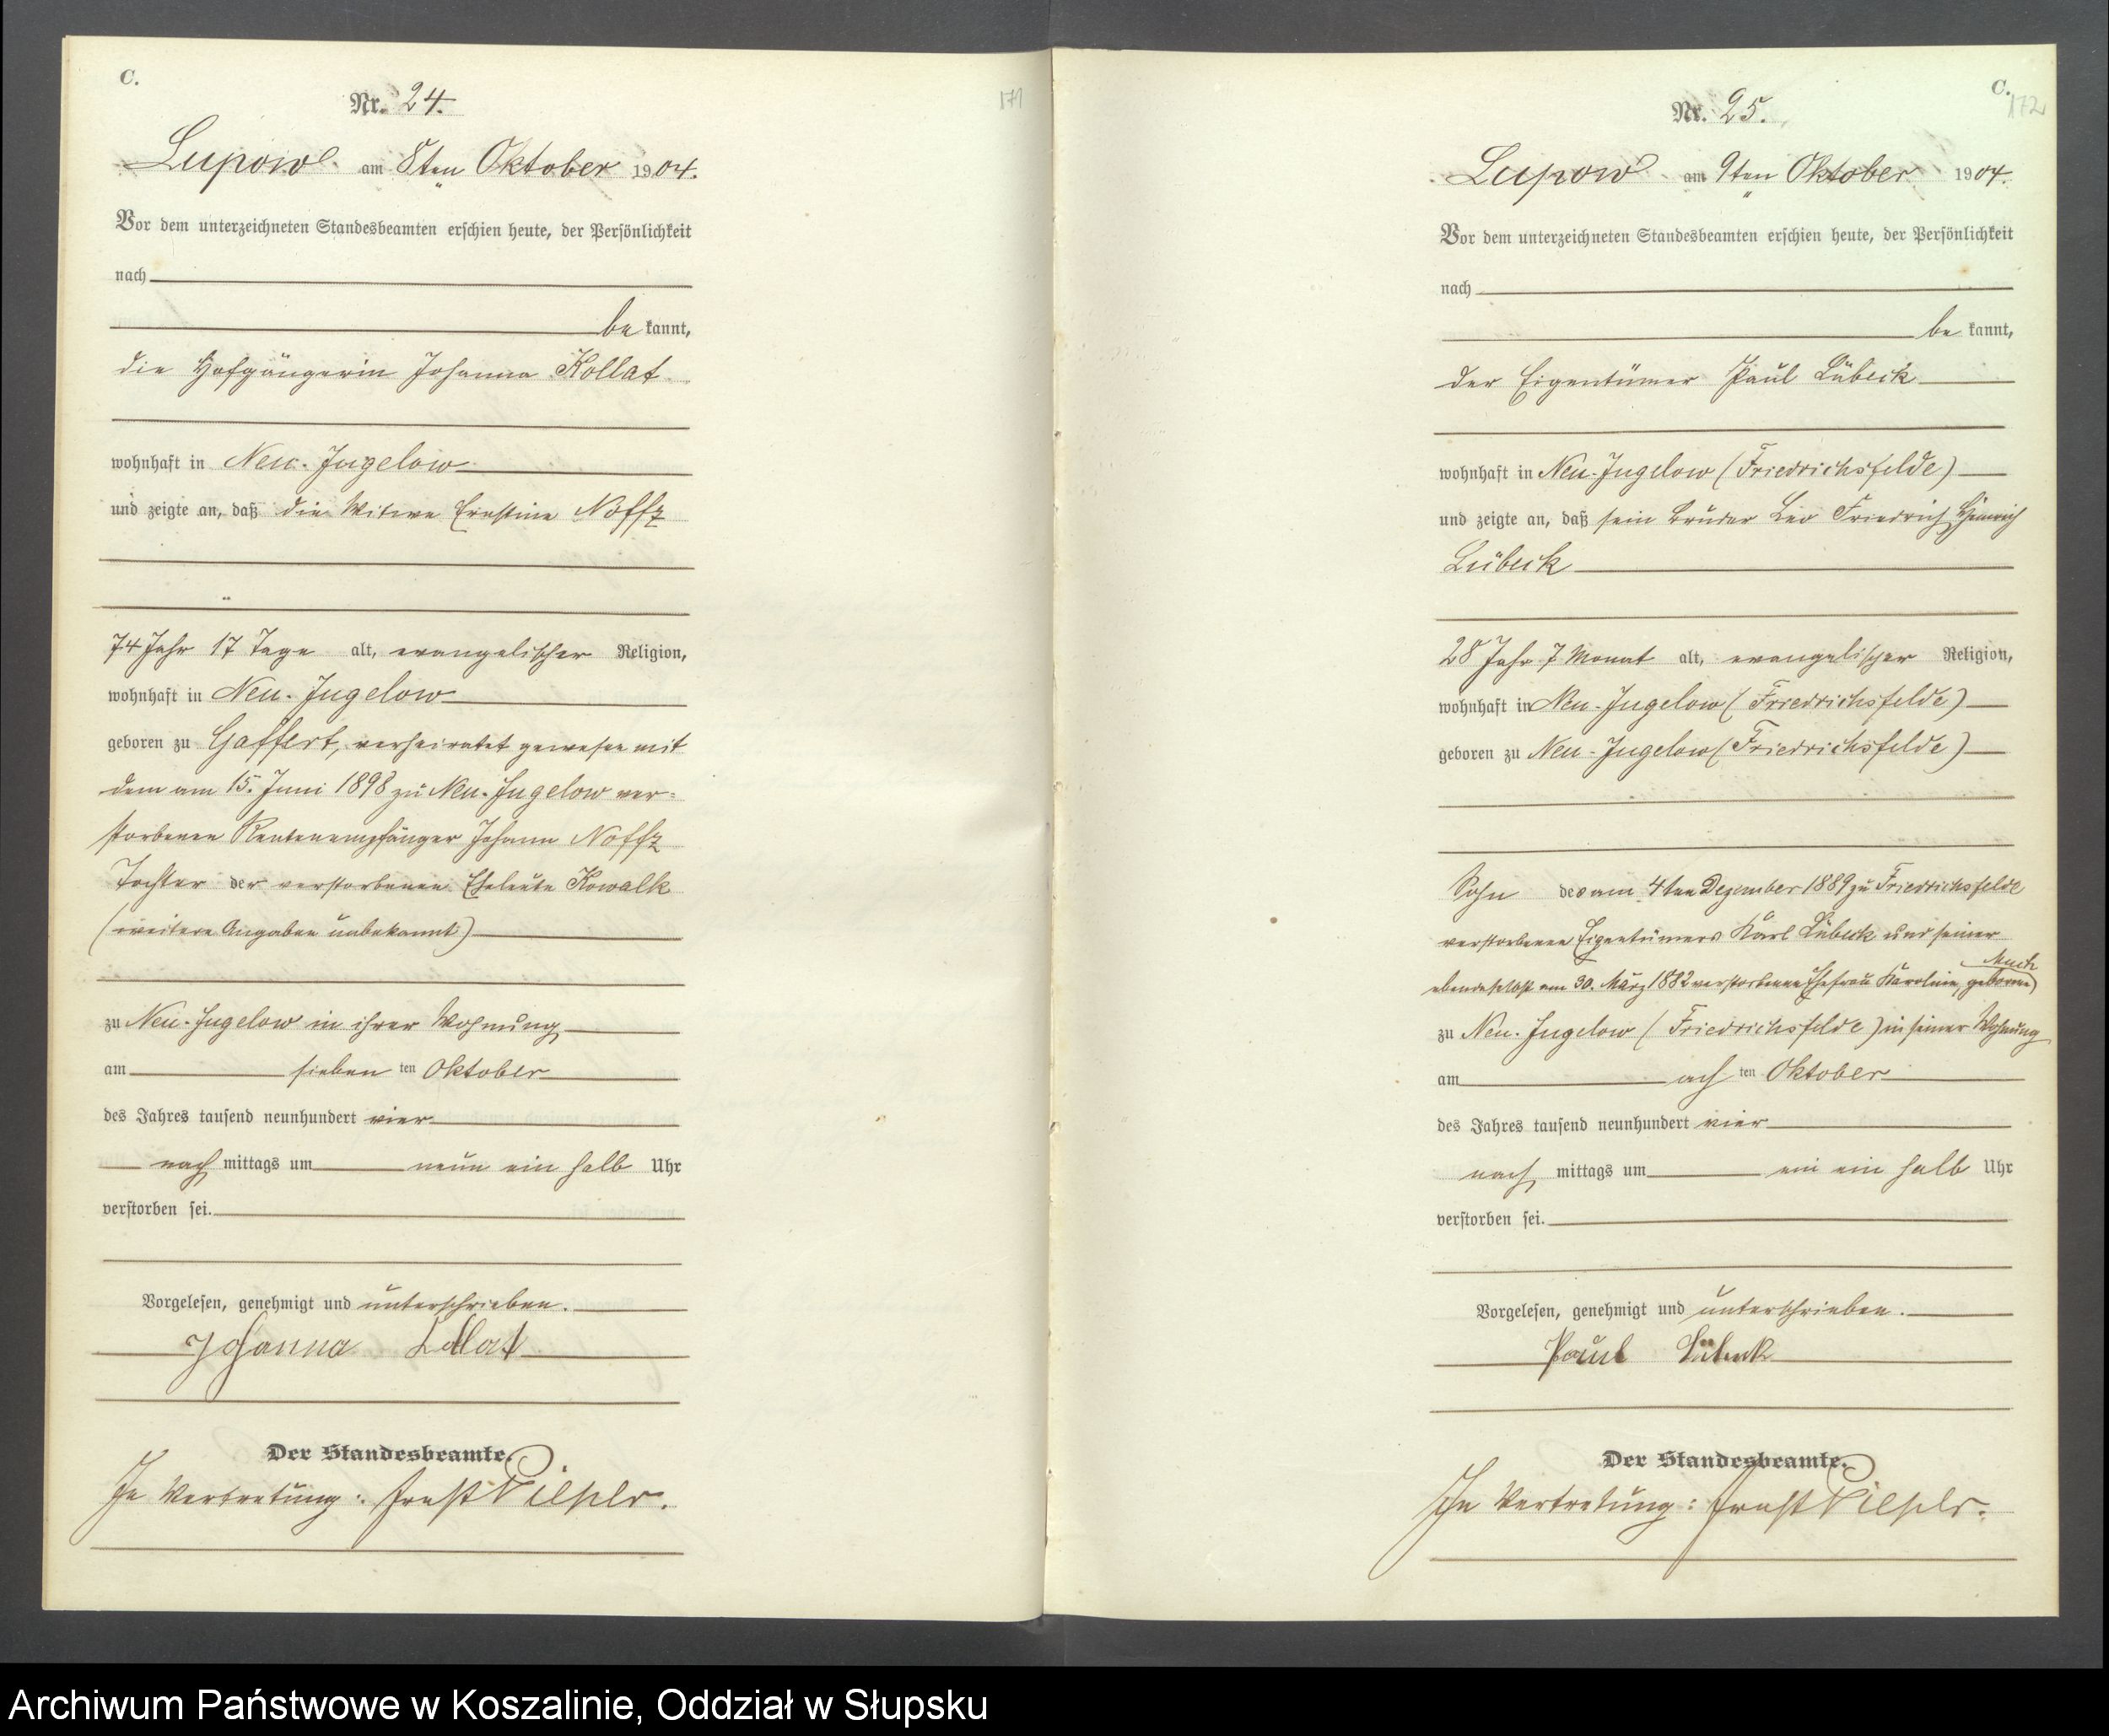 C.
Nr. 24.
Lupow am 8ten Oktober 1904.
Vor dem unterzeichneten Standesbeamten erschien heute, der Persönlichkeit
nach
be kannt,
die Hofgängerin Johanna Kollat
wohnhaft in Neu-Jugelow
und zeigte an, daß die Witwe Ernstine Noffz
74 Jahr 17 Tage alt, evangelischer Religion,
wohnhaft in Neu-Jugelow
geboren zu Gaffert, verheiratet gewesen mit
dem am 15. Juni 1898 zu Neu-Jugelow ver-
storbenen Rentenempfänger Johann Noffz
Tochter der verstorbenen Eheleute Kowalk
(weitere Angaben unbekannt)
zu Neu-Jugelow in ihrer Wohnung
am sieben ten Oktober
des Jahres tausend neunhundert vier
nach mittags um neun ein halb Uhr
verstorben sei.
Vorgelesen, genehmigt und unterschrieben.
Johanna Kollat
Der Standesbeamte.
In Vertretung: Ernst
171
C.
172
Nr. 25.
Lupow am 9ten Oktober 1904.
Vor dem unterzeichneten Standesbeamten erschien heute, der Persönlichkeit
nach
be kannt,
der Eigentümer Paul Lübeck
wohnhaft in Neu-Jugelow (Friedrichsfelde)
und zeigte an, daß sein Bruder Leo Friedrich Heinrich
Lübeck
28 Jahr 7 Monat alt, evangelischer Religion,
wohnhaft in Neu-Jugelow (Friedrichsfelde)
geboren zu Neu-Jugelow (Friedrichsfelde)
Sohn des am 4ten Dezember 1889 zu Friedrichsfelde
verstorbenen Eigentümers Karl Lübeck und seiner
ebendaselbst am 30. März 1882 verstorbenen Ehefrau Karoline, geborne
zu Neu-Jugelow (Friedrichsfelde) in seiner Wohnung
am ach ten Oktober
des Jahres tausend neunhundert vier
nach mittags um ein ein halb Uhr
verstorben sei.
Vorgelesen, genehmigt und unterschrieben.
Paul Lübeck
Der Standesbeamte.
In Vertretung: Ernst
Archiwum Państwowe w Koszalinie, Oddział w Słupsku